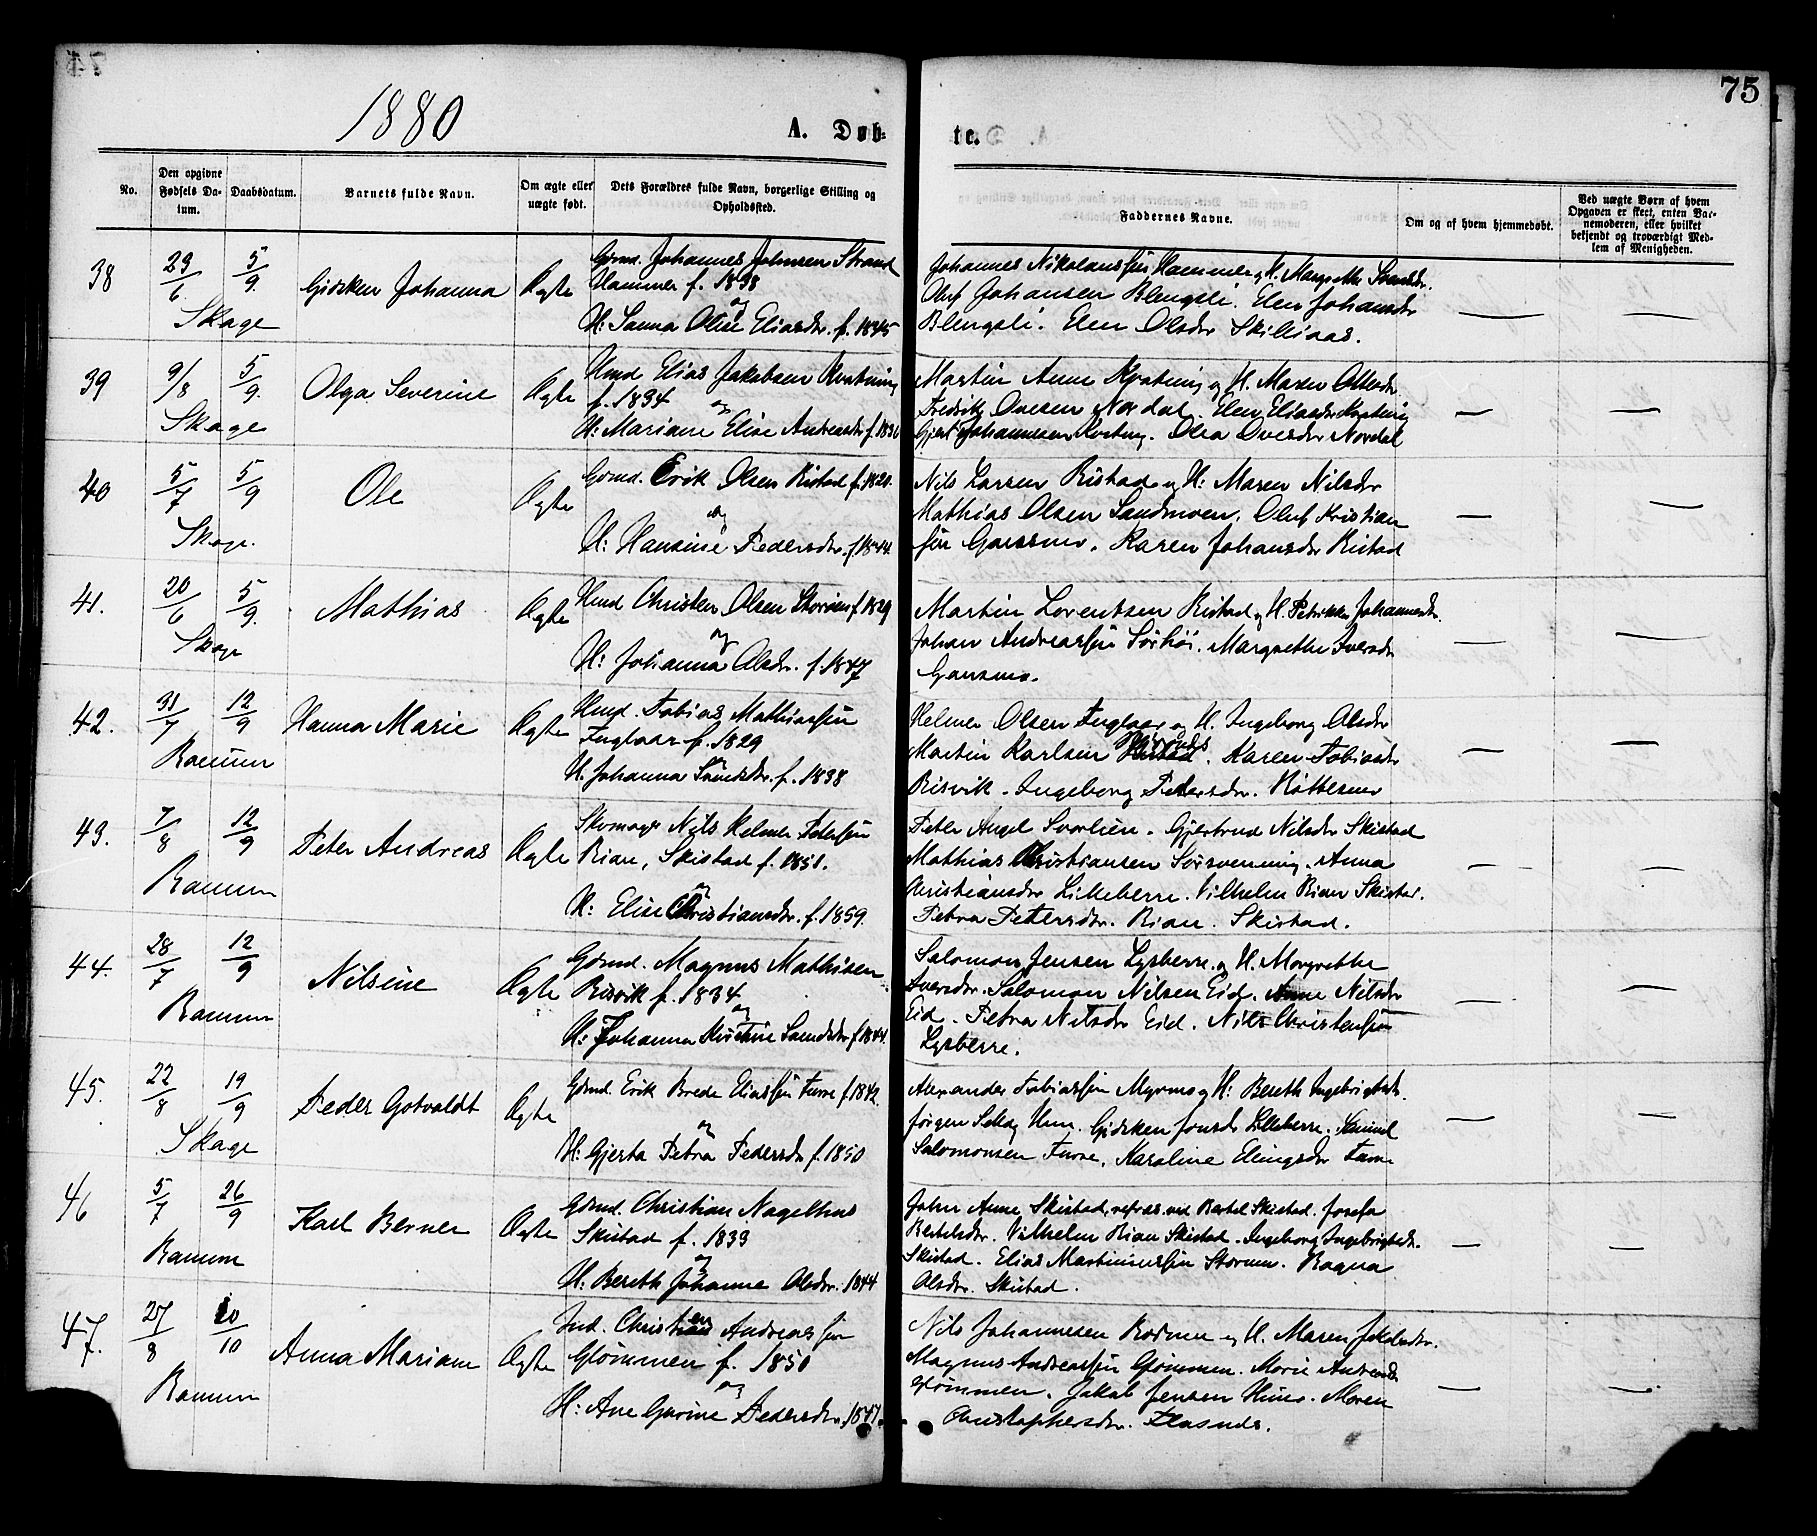 75
1880
A. Døb-
te.
No.
Den opgivne Fødsels Da-tum.
Daabsdatum.
Barnets fulde Navn.
Om ægte eller uægte født.
Dets Forældres fulde Navn, borgerlige Stilling og Opholdssted.
Faddernes Navne.
Om og af hvem hjemmedøbt.
Ved uægte Børn af hvem Opgaven er skeet, enten Bar-nemoderen, eller hvilket bekjendt og troværdigt Med-lem af Menigheden.
38
29/6
5/9
Skage
Gidsken Johanna
Ægte
Grmd. Johannes Johnsen Strand
Hammer f. 1838
og
H: Sanna Oline Eliasdr. f. 1845
Johannes Nikolaussøn Hammer og H. Margrethe
Oluf Johansen Blengsli. Elen Johansdr
Blengsli. Elen Olsdr Skilliaas.
39
9/8
5/9
Skage
Olga Severine
Ægte
Hmd Elias Jakobsen Kvatning
f. 1834
og
H: Mariane Elise Andreasdr f.
Martin Kvatning og H. Maren
Fredrik Ovesen Nordal. Elen Eliasdr Kvatning
Gjert Johannesen Kvatning. Olea Ovesdr Nordal
40
5/7
5/9
Skage.
Ole
Ægte
Grmd. Erik Olsen Ristad f.
og
H: Hansine Pedersdr. f 1844.
Nils Larsen Ristad og H: Maren Nilsdr
Mathias Olsen Sandmoen. Oluf Kristian
søn Gansmo. Karen Johansdr Ristad
41.
20/6
5/9.
Skage
Mathias
Ægte
Hmd Christen Olsen f 1829
og
H: Johanna Olsdr. f. 1847
Martin Lorentsen Ristad og H. Petrikke Johannesdr.
Johan Andreassøn Sørhøi. Margrethe Iversdr
Gansmo.
42.
31/7
12/9
Ranum
Hanna Marie
Ægte
Hmd. Tobias Mathiassøn
Fuglaar f. 1829
H. Johanna f. 1838
Helmer Olsen Fuglaar og H. Ingeborg Olsdr
Martin Karlsen. Karen Tobiasdr
Risvik. Ingeborg Petersdr.
43.
7/8
12/9
Ranum
Peter Andreas
Ægte
Skomager Nils Helmer Petersøn
Rian, Skistad f. 1851.
og
H: Elise Christiansdr. f. 1859.
Peter Angel Svorlien. Gjertrud Nilsdr Skistad
Mathias Christiansen Anna
Christiansdr Lilleberre. Vilhelm Rian Skistad.
Petra Petersdr. Rian. Skistad.
44.
28/7
12/9
Ranum
Nilsine
Ægte
Grmd. Magnus Mathisen
Risvik f. 1834
og
H: Johanna Kristine f 1844.
Salomon Jensen Lysberre og H. Margrethe
Iversdr. Salomon Nilsen Eid. Anne Nilsdr
Eid. Petra Nilsdr Eid. Nils Christensøn
Lysberre.
45.
22/8
19/9
Skage
Peder Gotvaldt
Ægte
Grmd. Erik Brede Eliassøn Furre f. 1842.
og
H: Gjerta Petra Pedersdr f. 1850
Alexander Tobiassøn Myrmo og H: Bereth Ingebrigtsdr.
Jørgen Hun. Gidsken Jonsdr Lilleberre.
Salomonsen Furre. Karoline Elingsdr
46
5/7
26/9
Ranum
Karl Berner
Ægte
Grmd. Christian Nagelhus
Skistad f. 1833
og
H. Bereth Johanne Olsdr. 1844
John Skistad, repræs. ved Bertel Skistad. Josefa
Bertelsdr. Vilhelm Rian Skistad. Ingeborg Ingebrigtsdr.
Skistad. Elias Martinussøn. Ragna
Olsdr. Skistad.
47.
27/8
10/10
Ranum
Anna Mariane
Ægte
Ind. Christen Andreassøn
Glømmen f. 1850
og
H: Ane Gurine Pedersdr. 1847.
Nils Johannesen og H. Maren Jakobsdr.
Magnus Andreassøn Glømmen. Marie Andreasdr
Glømmen. Jakob Jensen. Maren
Christophersdr. Flasnes.